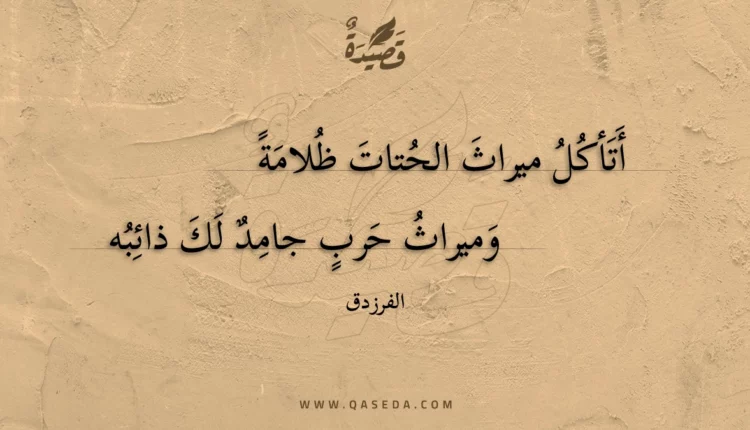 قَصِيدَةٌ
أَتَأكُلُ ميراثَ الحُتاتَ ظُلامَةً
وَميراثُ حَربٍ جامِدٌ لَكَ ذائِبُه
الفرزدق
WWW.QASEDA.COM